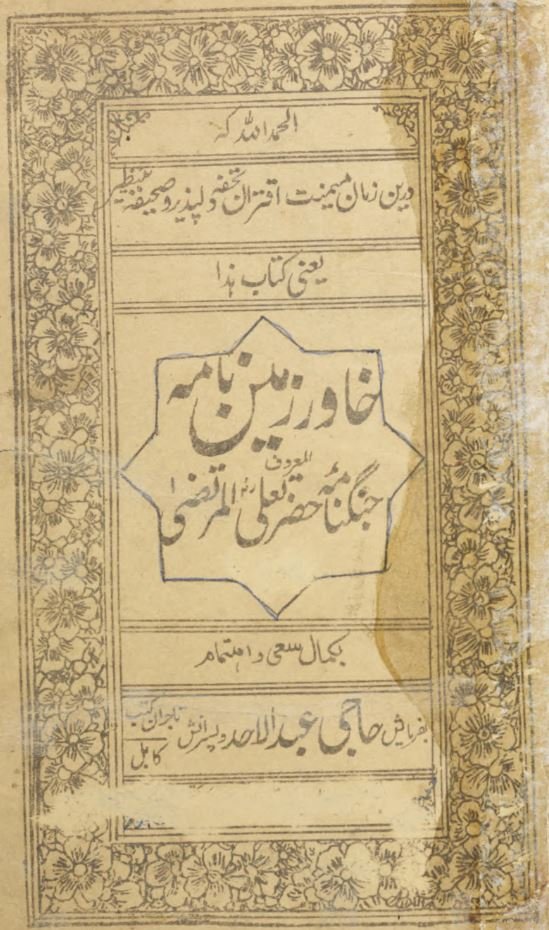 الحمدالله که
درین زمان میمنت اقتران تحفه دلپذیر و صحیفه بینظیر
یعنی کتاب هذا
خاور زمین نامه
المعروف
جنگنامهٔ حضرت علی المرتضیٰ
بکمال سعی و اهتمام
بفرمایش حاجی عبدالاحد و پسرانش تاجران کتب
کابل